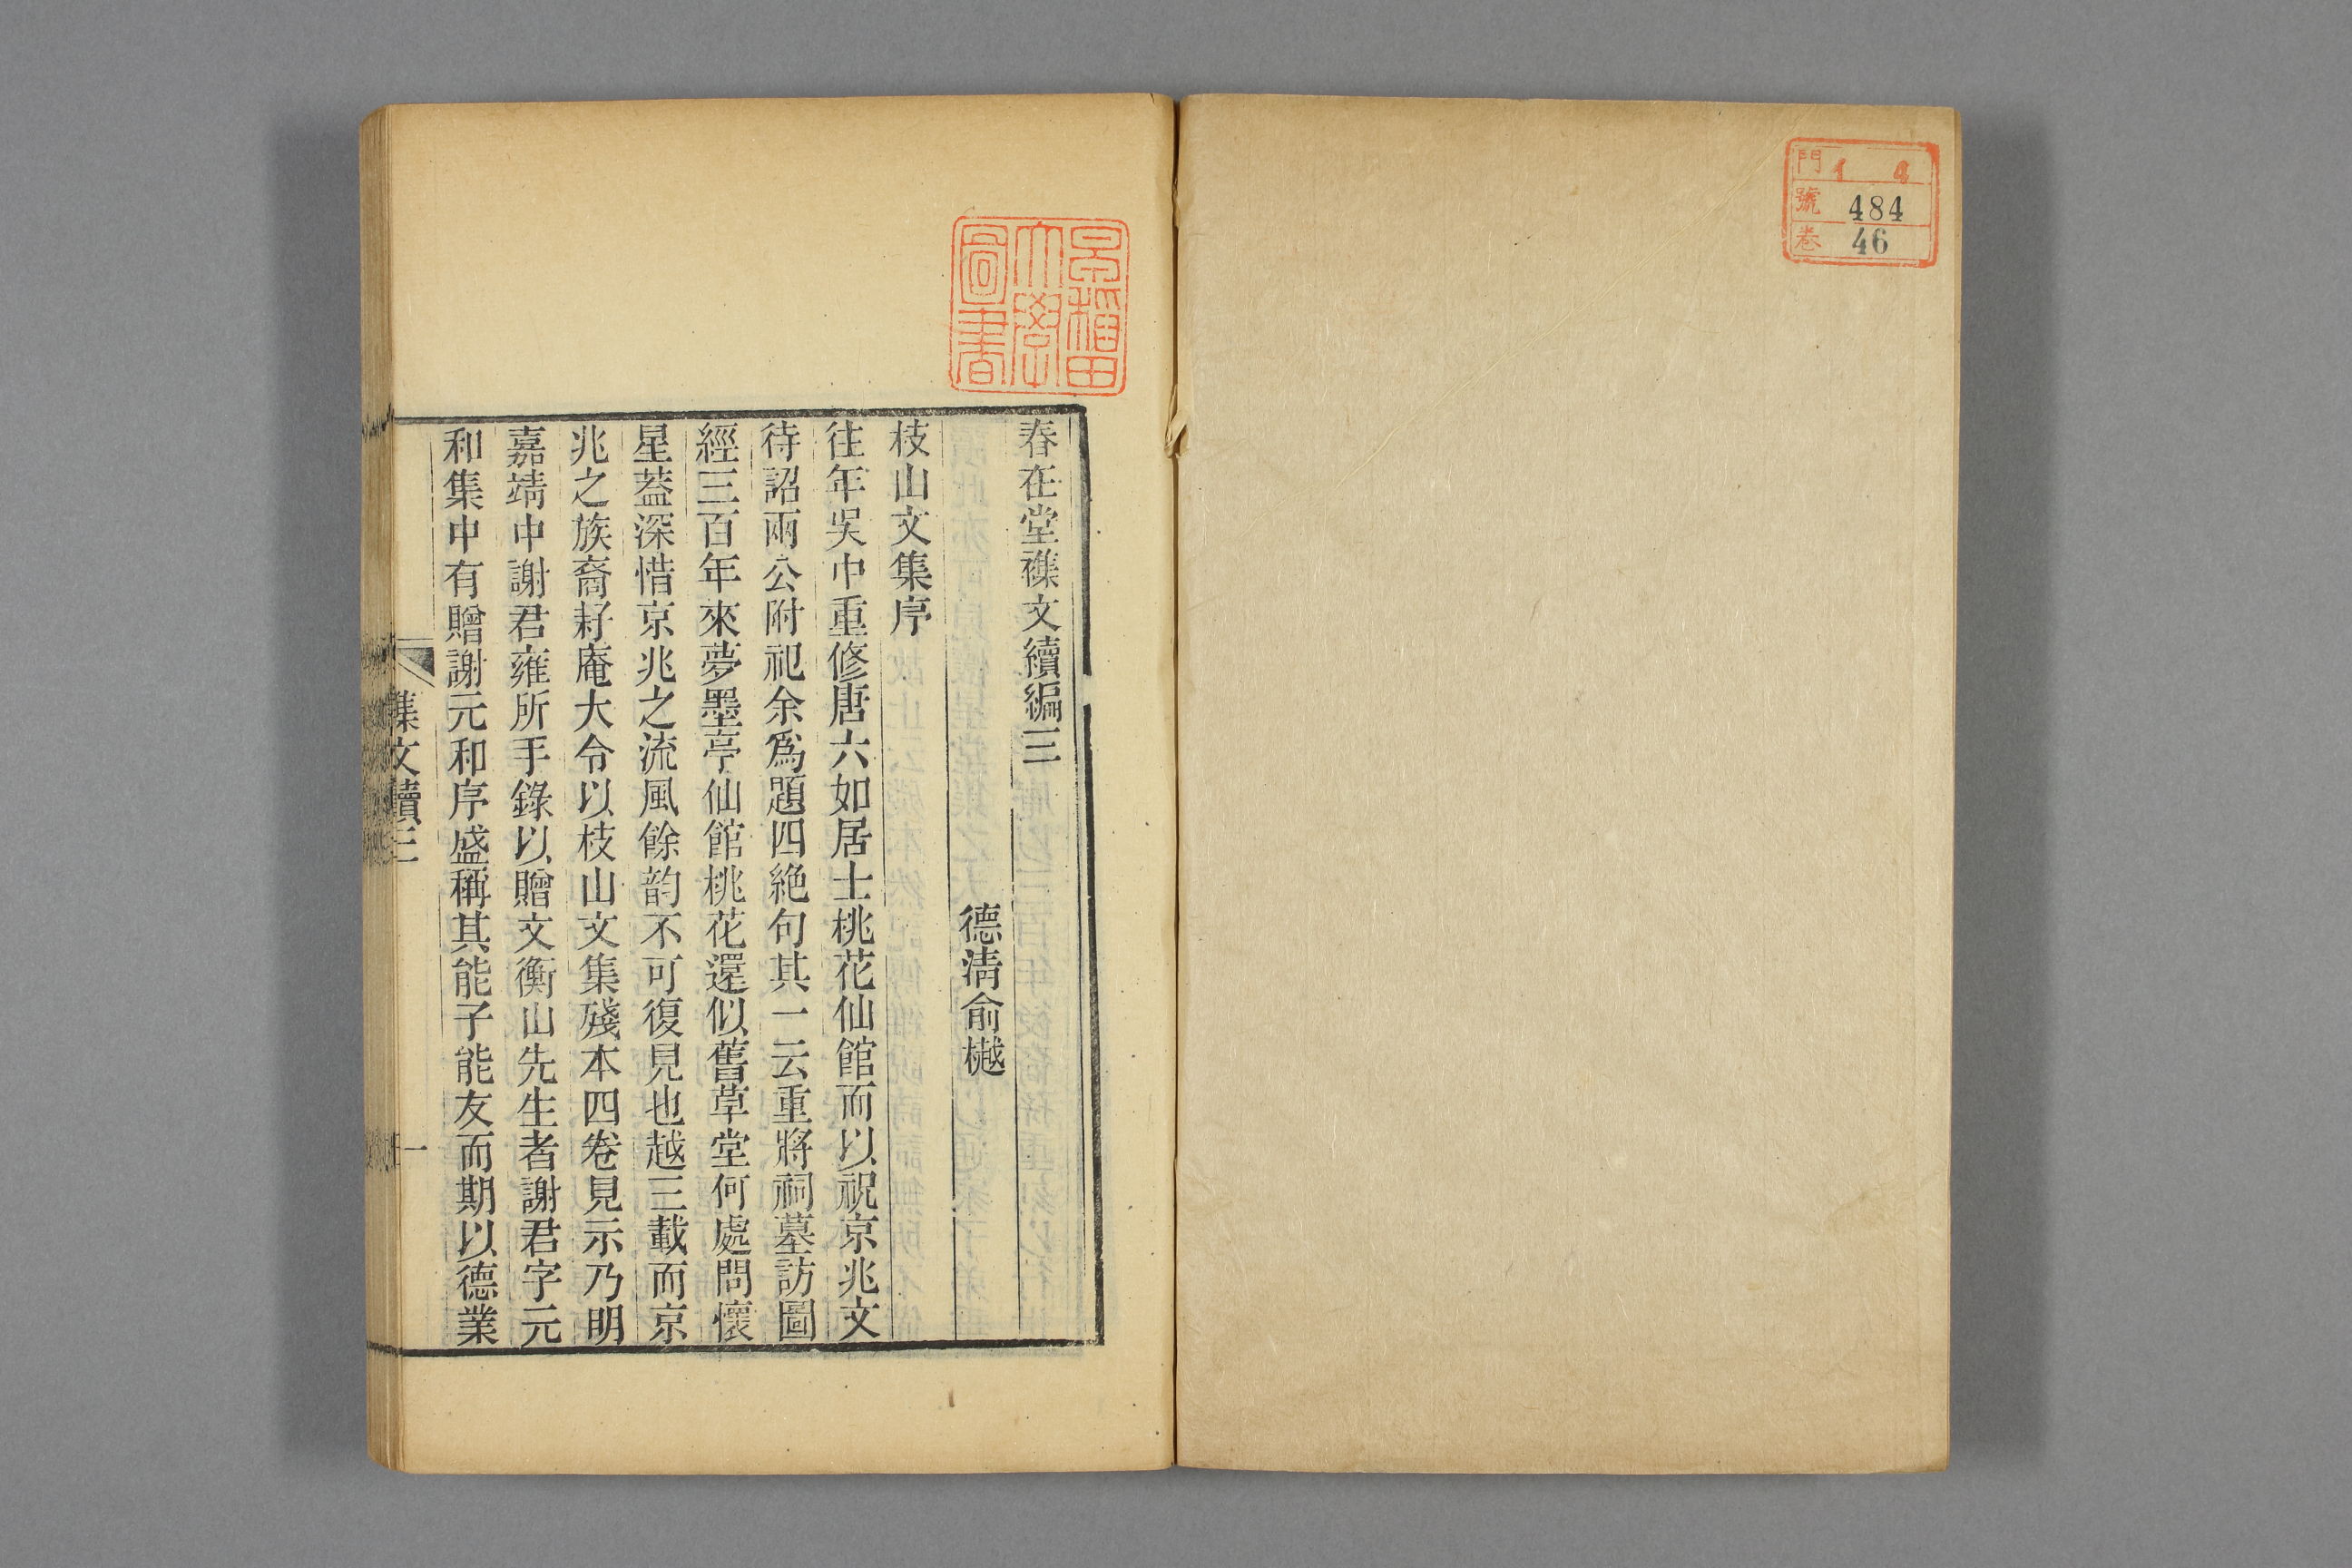 門 1 4
號 484
卷 46
早稲田
大學
圖書
春在堂襍文續編三
德清俞樾
枝山文集序
往年吳中重修唐六如居士桃花仙館而以祝京兆文
待詔兩公附祀余爲題四絶句其一云重將祠墓訪圖
經三百年來夢墨亭仙館桃花還似舊草堂何處問懷
星葢深惜京兆之流風餘韵不可復見也越三載而京
兆之族裔耔庵大令以枝山文集殘本四卷見示乃明
嘉靖中謝君雍所手錄以贈文衡山先生者謝君字元
和集中有贈謝元和序盛稱其能子能友而期以德業
襍文續三
一